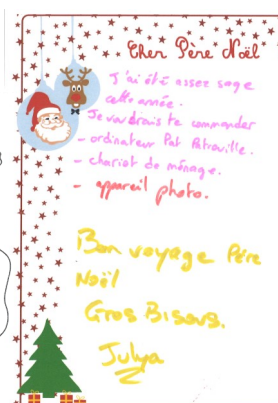 Cher Père Noël
J'ai été assez sage
cette année.
Je voudrais te commander
- ordinateur Pat Patrouille.
- chariot de ménage.
- appareil photo.
Bon voyage Père
Noël
Gros Bisous.
Julya